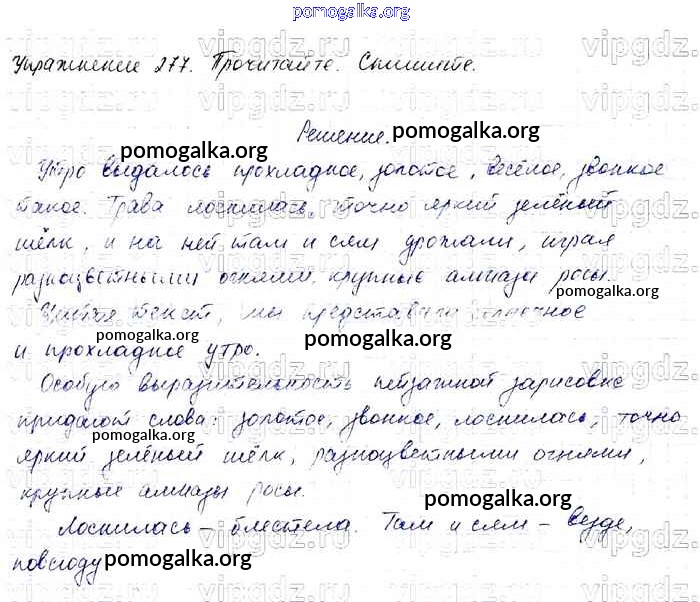 pomogalka.org
Упражнение 277. Прочитайте. Спишите.
Решение.
pomogalka.org
pomogalka.org
Утро выдалось прохладное, золотое, весёлое, звонкое
такое. Трава лоснилась, точно яркий зелёный
шёлк, и на ней там и сям дрожали, играя
разноцветными огнями, крупные алмазы росы.
pomogalka.org
Читая текст, мы представили солнечное
и прохладное утро.
pomogalka.org
Особую выразительность пейзажной зарисовке
придают слова: золотое, звонкое, лоснилась, точно
pomogalka.org
яркий зелёный шёлк, разноцветными огнями,
крупные алмазы росы.
pomogalka.org
Лоснилась – блестела. Там и сям – везде,
повсюду
pomogalka.org
vipgdz.ru